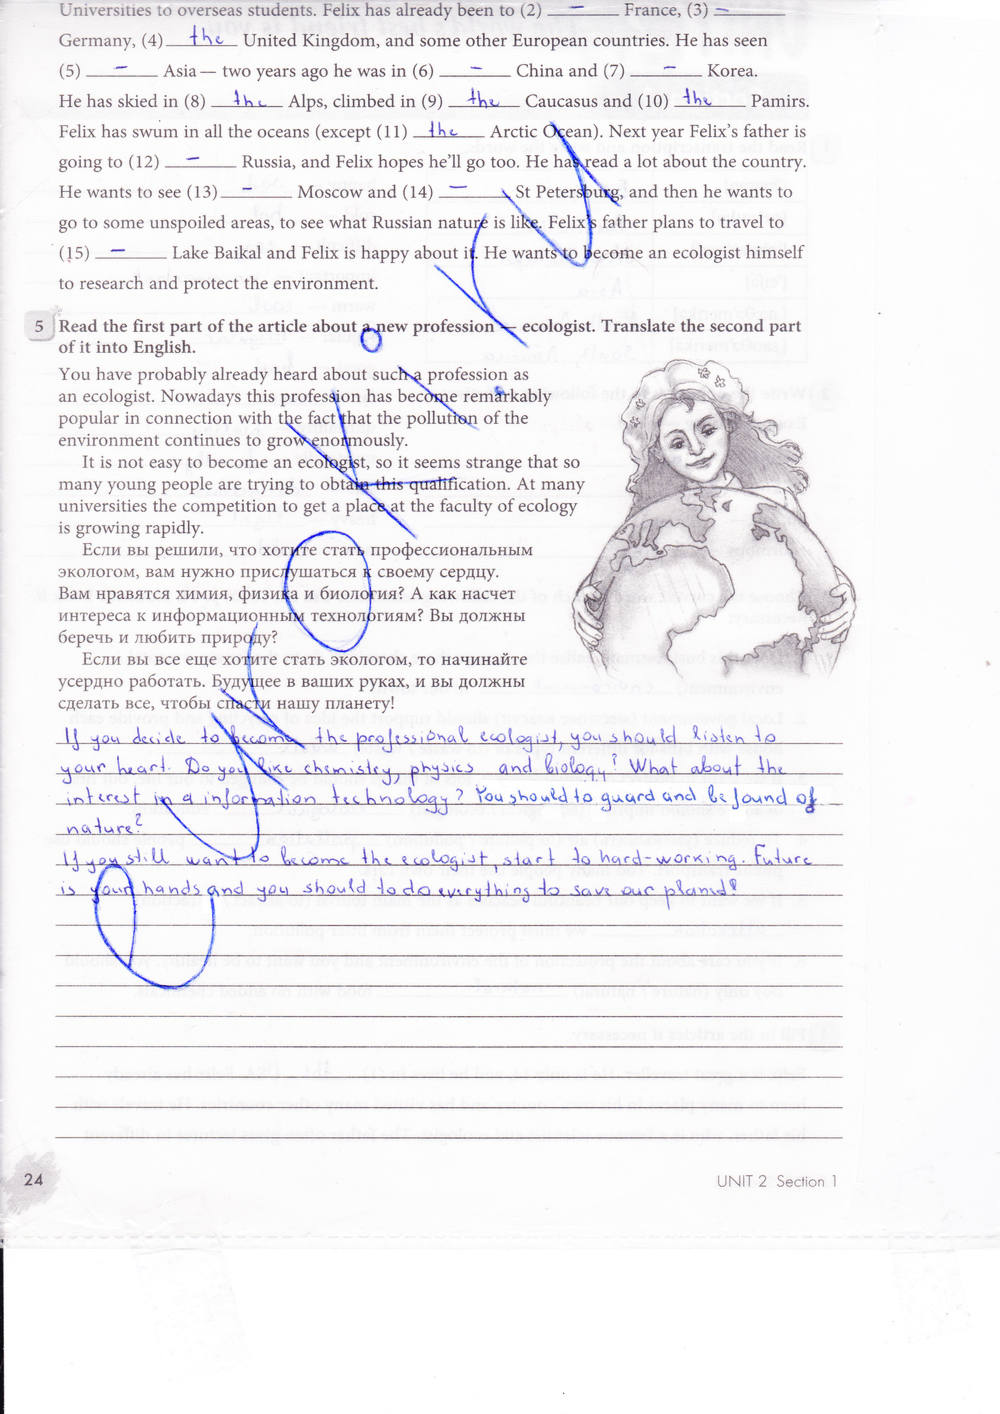 Universities to overseas students. Felix has already been to (2) – France, (3) –
Germany, (4) the United Kingdom, and some other European countries. He has seen
(5) – Asia — two years ago he was in (6) – China and (7) – Korea.
He has skied in (8) the Alps, climbed in (9) the Caucasus and (10) the Pamirs.
Felix has swum in all the oceans (except (11) the Arctic Ocean). Next year Felix's father is
going to (12) – Russia, and Felix hopes he'll go too. He has read a lot about the country.
He wants to see (13) – Moscow and (14) – St Petersburg, and then he wants to
go to some unspoiled areas, to see what Russian nature is like. Felix's father plans to travel to
(15) – Lake Baikal and Felix is happy about it. He wants to become an ecologist himself
to research and protect the environment.
5 Read the first part of the article about a new profession — ecologist. Translate the second part
of it into English.
You have probably already heard about such a profession as
an ecologist. Nowadays this profession has become remarkably
popular in connection with the fact that the pollution of the
environment continues to grow enormously.
It is not easy to become an ecologist, so it seems strange that so
many young people are trying to obtain this qualification. At many
universities the competition to get a place at the faculty of ecology
is growing rapidly.
Если вы решили, что хотите стать профессиональным
экологом, вам нужно прислушаться к своему сердцу.
Вам нравятся химия, физика и биология? А как насчет
интереса к информационным технологиям? Вы должны
беречь и любить природу?
Если вы все еще хотите стать экологом, то начинайте
усердно работать. Будущее в ваших руках, и вы должны
сделать все, чтобы спасти нашу планету!
If you decide to become the professional ecologist, you should listen to
your heart. Do you like chemistry, physics and biology? What about the
interest in a information technology? You should to guard and be found of
nature?
If you still want to become the ecologist, start to hard-working. Future
is your hands and you should to do everything to save our planet!
24
UNIT 2 Section 1